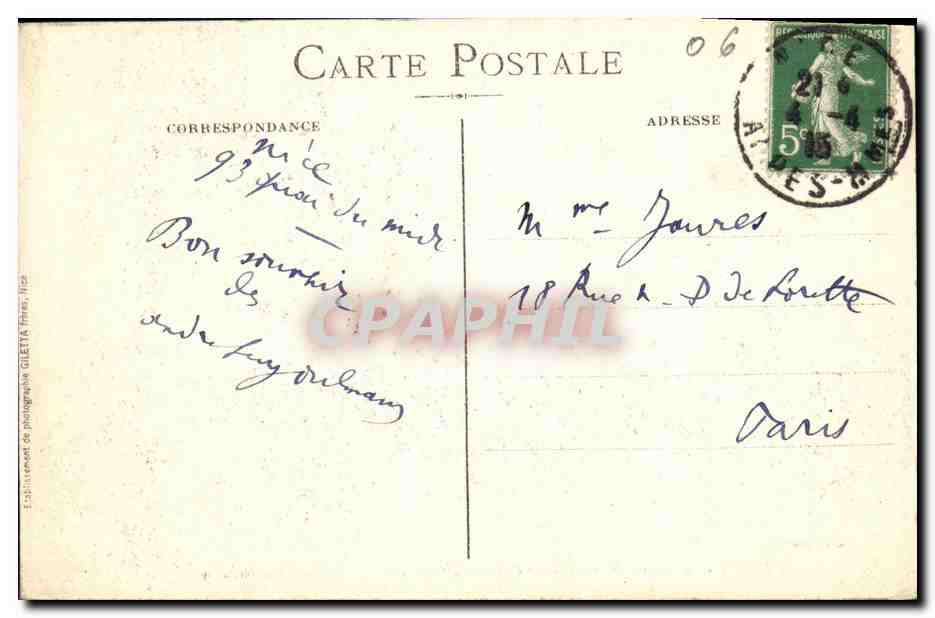 CARTE POSTALE
06
CORRESPONDANCE
ADRESSE
RÉPUBLIQUE FRANÇAISE
5c
NICE
21
4 -4
15
ALPES-MMES
Nice
93 quai du midi
Bon souvenir
des
Mme Jouves
18 Rue N. D de Lorette
Paris
CPAPHIL
Etablissement de photographie GILETTA frères, Nice